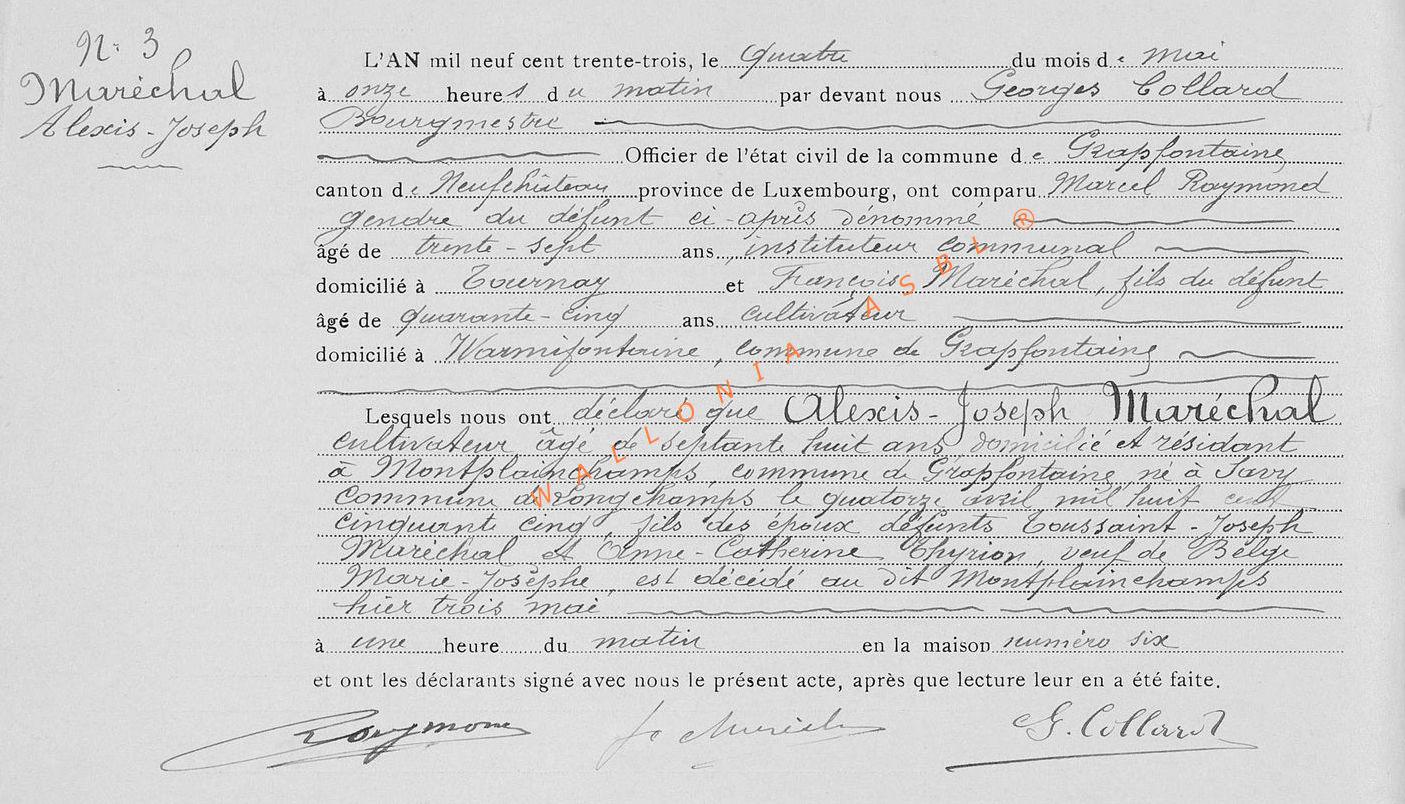 N° 3
Maréchal
Alexis-Joseph
L'AN mil neuf cent trente-trois, le quatre du mois de mai
à onze heures du matin par devant nous Georges Collard
Bourgmestre
Officier de l'état civil de la commune de Grapfontaine
canton de Neufchâteau province de Luxembourg, ont comparu Marcel Raymond
gendre du défunt ci-après dénommé
âgé de trente-sept ans, instituteur communal
domicilié à Tournay et François Maréchal, fils du défunt
âgé de quarante-cinq ans cultivateur
domicilié à Warmifontaine, commune de Grapfontaine
Lesquels nous ont déclaré que Alexis-Joseph Maréchal
cultivateur âgé de septante huit ans domicilié et résidant
à Montplainchamps, commune de Grapfontaine, né à Savy
commune de Longchamps le quatorze avril mil huit cent
cinquante cinq, fils des époux défunts Toussaint-Joseph
Maréchal et Anne-Catherine Thyrion, veuf de Bélge
Marie-Josèphe, est décédé au dit Montplainchamps
hier trois mai
à une heure du matin en la maison numéro six
et ont les déclarants signé avec nous le présent acte, après que lecture leur en a été faite.
Raymond G. Collard
WALLONIA ASBL ®